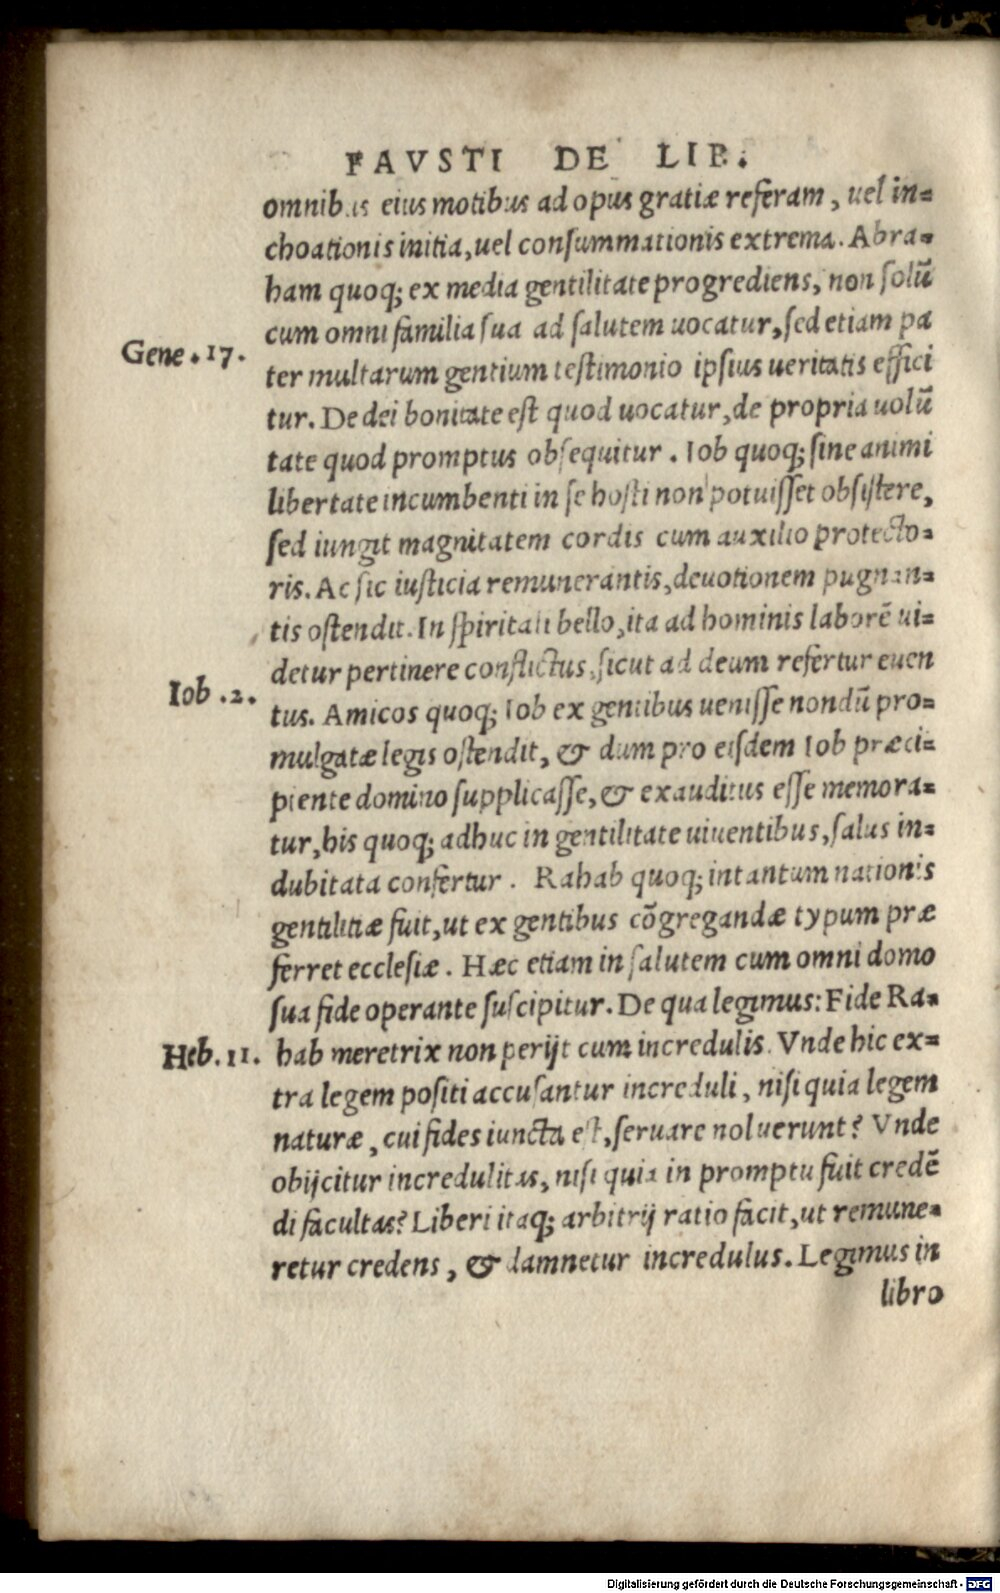 FAVSTI DE LIB.
omnibus eius motibus ad opus gratiæ referam, uel in=
choationis initia, uel consummationis extrema. Abra=
ham quoq; ex media gentilitate progrediens, non solū
cum omni familia sua ad salutem uocatur, sed etiam pa
Gene. 17.
ter multarum gentium testimonio ipsius ueritatis effici
tur. De dei bonitate est quod uocatur, de propria uolū
tate quod promptus obsequitur. Iob quoq; sine animi
libertate incumbenti in se hosti non potuisset obsistere,
sed iungit magnitatem cordis cum auxilio protecto=
ris. Ac sic iusticia remunerantis, deuotionem pugnan=
tis ostendit. In spiritali bello, ita ad hominis laborē ui=
detur pertinere conflictus, sicut ad deum refertur euen
Iob. 2.
tus. Amicos quoq; Iob ex gentibus uenisse nondū pro=
mulgatæ legis ostendit, & dum pro eisdem Iob præci=
piente domino supplicasse, & exauditus esse memora=
tur, his quoq; adhuc in gentilitate uiuentibus, salus in=
dubitata confertur. Rahab quoq; intantum nationis
gentilitiæ fuit, ut ex gentibus cōgregandæ typum præ
ferret ecclesiæ. Hæc etiam in salutem cum omni domo
sua fide operante suscipitur. De qua legimus: Fide Ra=
Heb. 11.
hab meretrix non perijt cum incredulis. Vnde hic ex=
tra legem positi accusantur increduli, nisi quia legem
naturæ, cui fides iuncta est, seruare noluerunt? Vnde
obijcitur incredulitas, nisi quia in promptu fuit credē
di facultas? Liberi itaq; arbitrij ratio facit, ut remune=
retur credens, & damnetur incredulus. Legimus in
libro
Digitalisierung gefördert durch die Deutsche Forschungsgemeinschaft - DFG